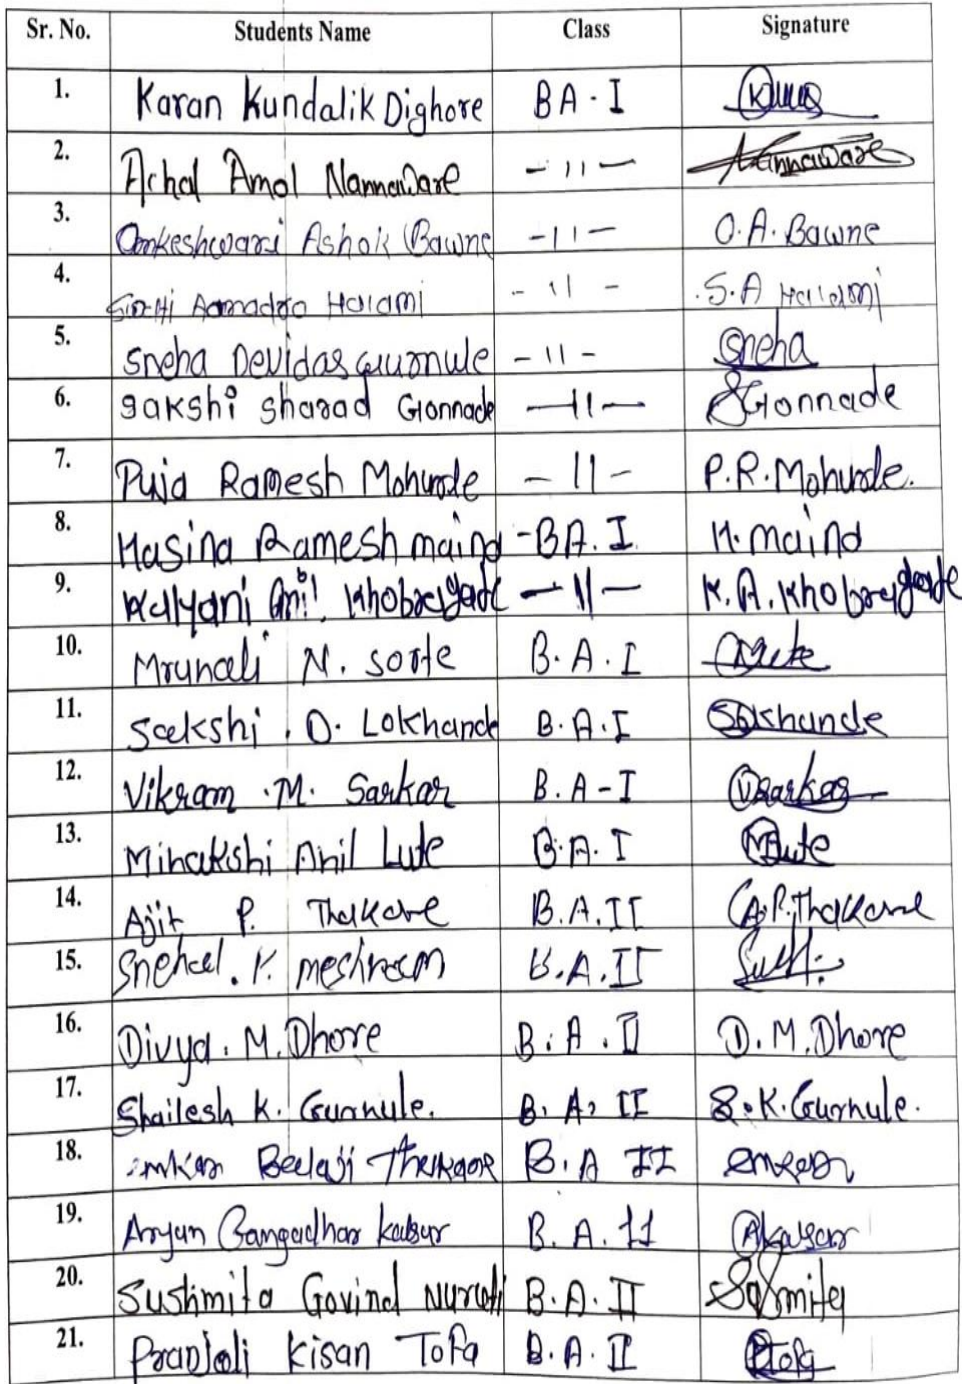 Sr. No. Students Name Class Signature
1. Karan Kundalik Dighore BA - I
2. Achal Amol Nannaware - 11 - Nannaware
3. Omkeshwari Ashok Bawne - 11 - O.A. Bawne
4. - 11 - S.A Halami
5. Sneha Devidas Gurnule - 11 - Sneha
6. Sakshi Sharad Gonnade - 11 - SGonnade
7. Puja Ramesh Mohurde - 11 - P.R. Mohurde.
8. Hasina Ramesh maind - BA. I H. maind
9. Kalyani Anil Khobragade - 11 - K.A. Khobragade
10. Mrunali N. sorte B. A. I
11. Sakshi . D. Lokhande B. A. I
12. Vikram . M. Sarkar B. A - I VSarkar
13. Minakshi Anil Lute B. A. I MLute
14. Ajit P. Thakare B. A. II A.P. Thakare
15. Snehal . K. meshram B. A. II
16. Divya . M. Dhore B. A. II D. M. Dhore
17. Shailesh K. Gurnule. B. A. II S. K. Gurnule.
18. B. A II
19. Aryan Gangadhar B. A. II
20. Sushmita Govind B. A. II
21. Pranjali Kisan Tofa B. A. II PTofa